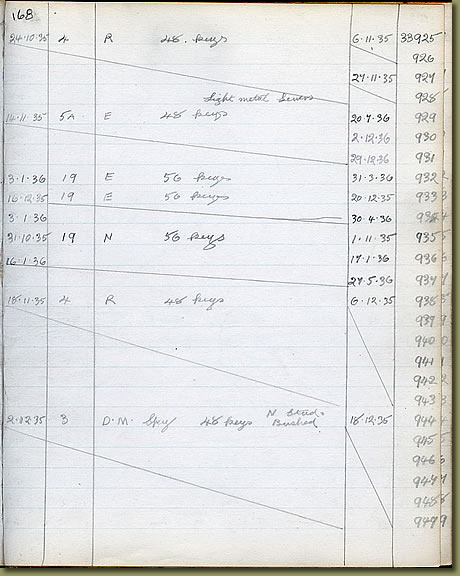 168
24·10·35 4 R 48 keys 6·11·35 33925
926
27·11·35 927
Light metal levers 928
14·11·35 5A E 48 keys 20·7·36 929
2·12·36 930
29·12·36 931
3·1·36 19 E 56 keys 31·3·36 932
16·12·35 19 E 56 keys 20·12·35 933
3·1·36 30·4·36 934
31·10·35 19 N 56 keys 1·11·35 935
16·1·36 17·1·36 936
27·5·36 937
18·11·35 4 R 48 keys 6·12·35 938
939
940
941
942
943
2·12·35 3 D.M. 48 keys N Studs Bushed 18·12·35 944
945
946
947
948
949